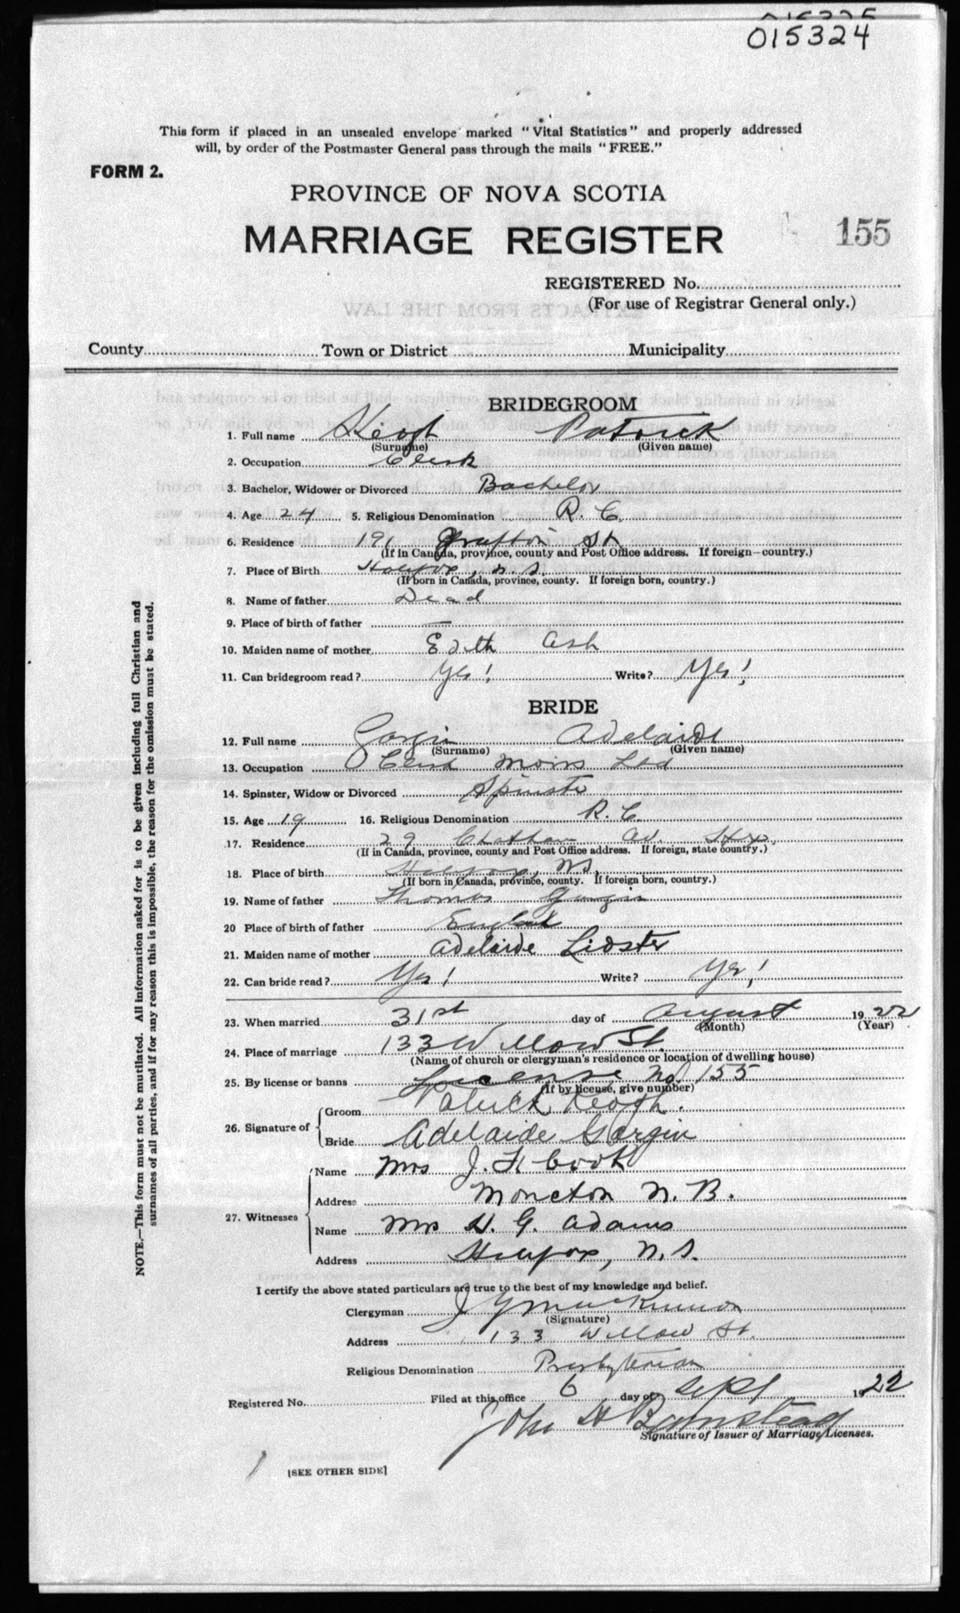 015325
015324
This form if placed in an unsealed envelope marked "Vital Statistics" and properly addressed
will, by order of the Postmaster General pass through the mails "FREE."
FORM 2.
PROVINCE OF NOVA SCOTIA
MARRIAGE REGISTER 155
REGISTERED No.
(For use of Registrar General only.)
County Town or District Municipality
BRIDEGROOM
1. Full name Keogh Patrick
(Surname) (Given name)
2. Occupation Clerk
3. Bachelor, Widower or Divorced Bachelor
4. Age 24 5. Religious Denomination R. C.
6. Residence 191 Grafton St
(If in Canada, province, county and Post Office address. If foreign—country.)
7. Place of Birth Halifax, N.S.
(If born in Canada, province, county. If foreign born, country.)
8. Name of father Dead
9. Place of birth of father —
10. Maiden name of mother Edith Ash
11. Can bridegroom read? Yes! Write? Yes!
BRIDE
12. Full name Gorgin Adelaide
(Surname) (Given name)
13. Occupation Clerk Moirs Ltd
14. Spinster, Widow or Divorced Spinster
15. Age 19 16. Religious Denomination R. C.
17. Residence 29 Av. Hfx.
(If in Canada, province, county and Post Office address. If foreign, state country.)
18. Place of birth Halifax, N.S.
(If born in Canada, province, county. If foreign born, country.)
19. Name of father Thomas Gorgin
20 Place of birth of father England
21. Maiden name of mother Adelaide Lidster
22. Can bride read? Yes! Write? Yes!
23. When married 31st day of August 1922
(Month) (Year)
24. Place of marriage 133 Willow St
(Name of church or clergyman's residence or location of dwelling house)
25. By license or banns License No. 155
(If by license, give number)
26. Signature of Groom Patrick Keogh.
Bride Adelaide Gorgin
27. Witnesses Name Mrs J. H Cook
Address Moncton N. B.
Name Mrs H. G. Adams
Address Halifax, N. S.
I certify the above stated particulars are true to the best of my knowledge and belief.
Clergyman J G MacKinnon
(Signature)
Address 133 Willow St.
Religious Denomination Presbyterian
Registered No. Filed at this office 6 day of Sept 1922
John H Barnstead
Signature of Issuer of Marriage Licenses.
[SEE OTHER SIDE]
NOTE.—This form must not be mutilated. All information asked for is to be given including full Christian and
surnames of all parties, and if for any reason this is impossible, the reason for the omission must be stated.